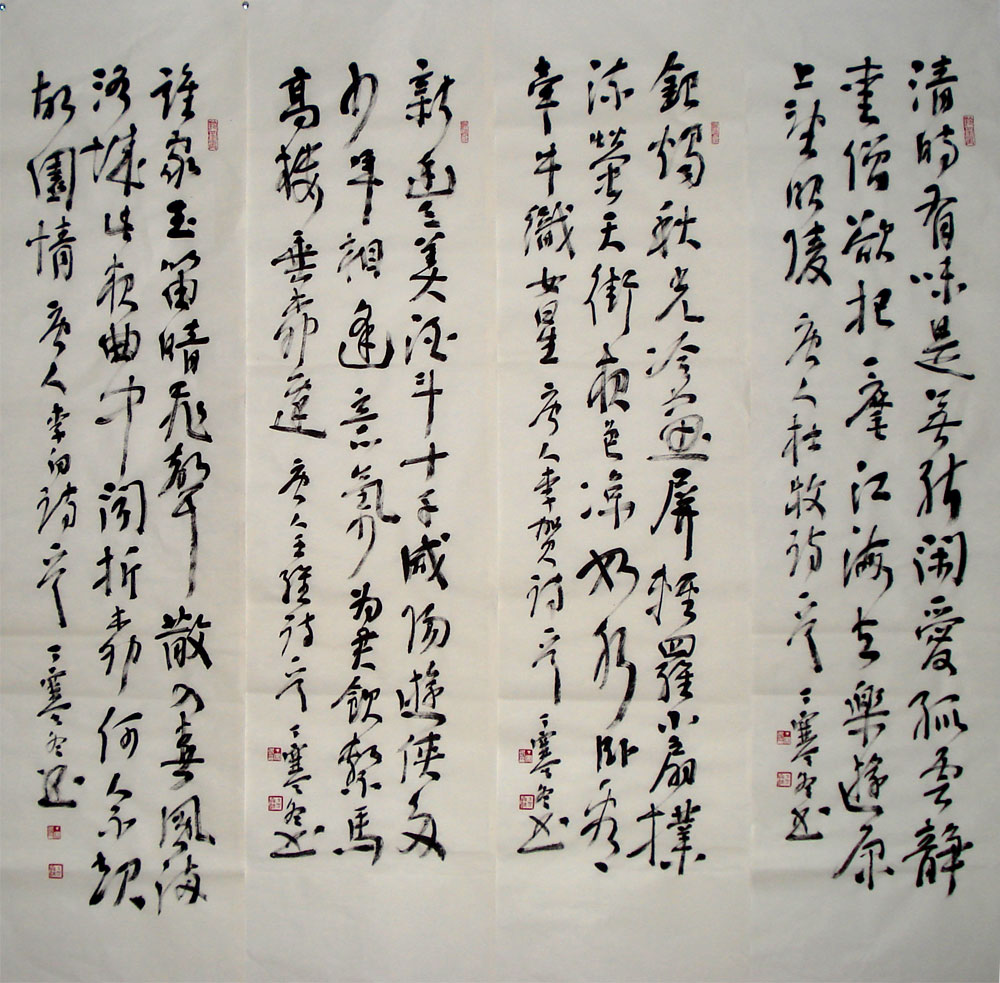 清時有味是無能閑愛孤雲靜
愛僧欲把一麾江海去樂遊原
上望昭陵 唐人杜牧詩一首
銀燭秋光冷畫屏輕羅小扇撲
流螢天街夜色涼如水臥看
牽牛織女星 唐人李賀詩一首
新豐美酒斗十千咸陽遊俠多
少年相逢意氣為君飲繫馬
高樓垂柳邊 唐人王維詩一首
誰家玉笛暗飛聲散入春風滿
洛城此夜曲中聞折柳何人不起
故園情 唐人李白詩一首